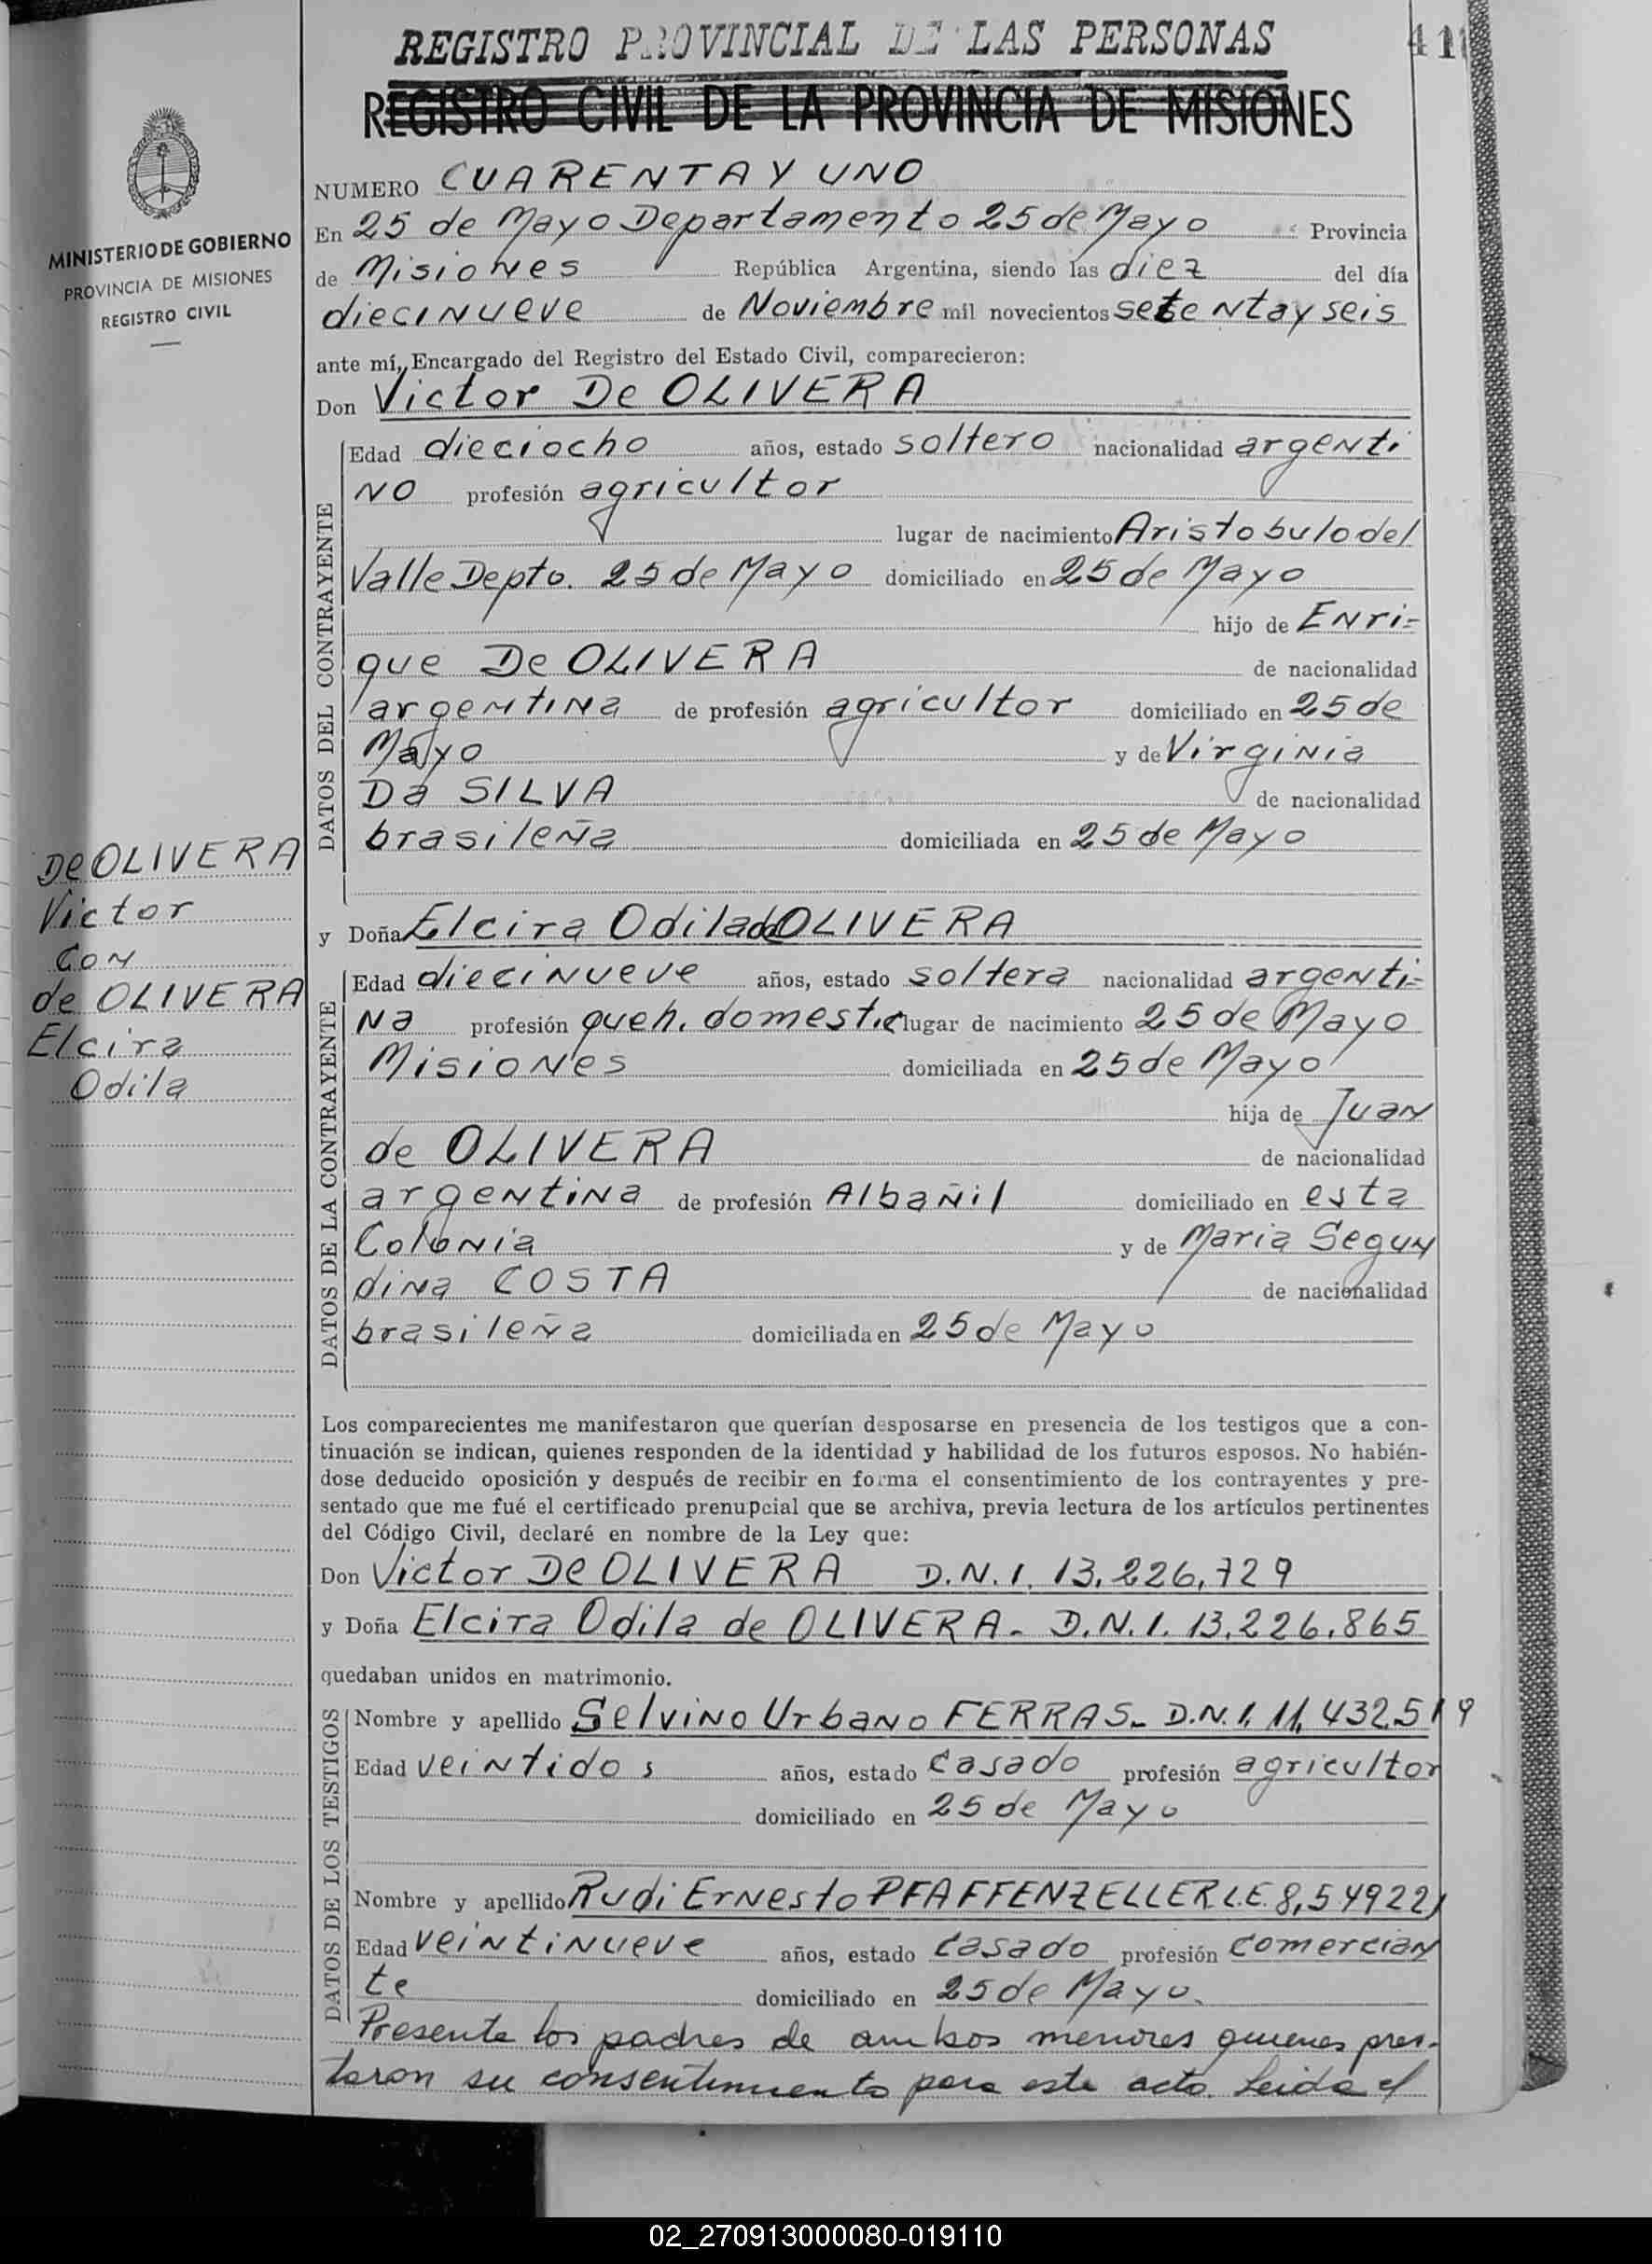 REGISTRO PROVINCIAL DE LAS PERSONAS
41
REGISTRO CIVIL DE LA PROVINCIA DE MISIONES
MINISTERIO DE GOBIERNO
PROVINCIA DE MISIONES
REGISTRO CIVIL
NUMERO CUARENTA Y UNO
En 25 de Mayo Departamento 25 de Mayo Provincia
de Misiones República Argentina, siendo las diez del día
diecinueve de Noviembre mil novecientos setenta y seis
ante mí, Encargado del Registro del Estado Civil, comparecieron:
Don Victor De OLIVERA
DATOS DEL CONTRAYENTE
Edad dieciocho años, estado soltero nacionalidad argenti
no profesión agricultor
lugar de nacimiento Aristobulo del
Valle Depto. 25 de Mayo domiciliado en 25 de Mayo
hijo de Enri=
que De OLIVERA de nacionalidad
argentina de profesión agricultor domiciliado en 25 de
Mayo y de Virginia
Da SILVA de nacionalidad
brasileña domiciliada en 25 de Mayo
De OLIVERA
Victor
Con
de OLIVERA
Elcira
Odila
y Doña Elcira Odila de OLIVERA
DATOS DE LA CONTRAYENTE
Edad diecinueve años, estado soltera nacionalidad argenti=
na profesión queh. domestic lugar de nacimiento 25 de Mayo
Misiones domiciliada en 25 de Mayo
hija de Juan
de OLIVERA de nacionalidad
argentina de profesión Albañil domiciliado en esta
Colonia y de Maria Segun
dina COSTA de nacionalidad
brasileña domiciliada en 25 de Mayo
Los comparecientes me manifestaron que querían desposarse en presencia de los testigos que a con-
tinuación se indican, quienes responden de la identidad y habilidad de los futuros esposos. No habién-
dose deducido oposición y después de recibir en forma el consentimiento de los contrayentes y pre-
sentado que me fué el certificado prenupcial que se archiva, previa lectura de los artículos pertinentes
del Código Civil, declaré en nombre de la Ley que:
Don Victor De OLIVERA D.N.I. 13,226,729
y Doña Elcira Odila de OLIVERA - D.N.I. 13.226.865
quedaban unidos en matrimonio.
DATOS DE LOS TESTIGOS
Nombre y apellido Selvino Urbano FERRAS - D.N.I. 11,432.519
Edad veintidos años, estado Casado profesión agricultor
domiciliado en 25 de Mayo
Nombre y apellido Rudi Ernesto PFAFFENZELLER L.E. 8,549221
Edad veintinueve años, estado Casado profesión Comercian
te domiciliado en 25 de Mayo.
Presente los padres de ambos menores quienes pres-
taron su consentimiento para este acto. Leida el
02_270913000080-019110